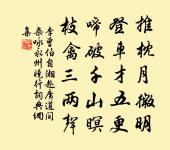 推枕月微明
登車才五更
啼破千山暝
枝禽三兩聲
李曾伯自湘赴廣道間
雜咏永州曉行詞典網
集